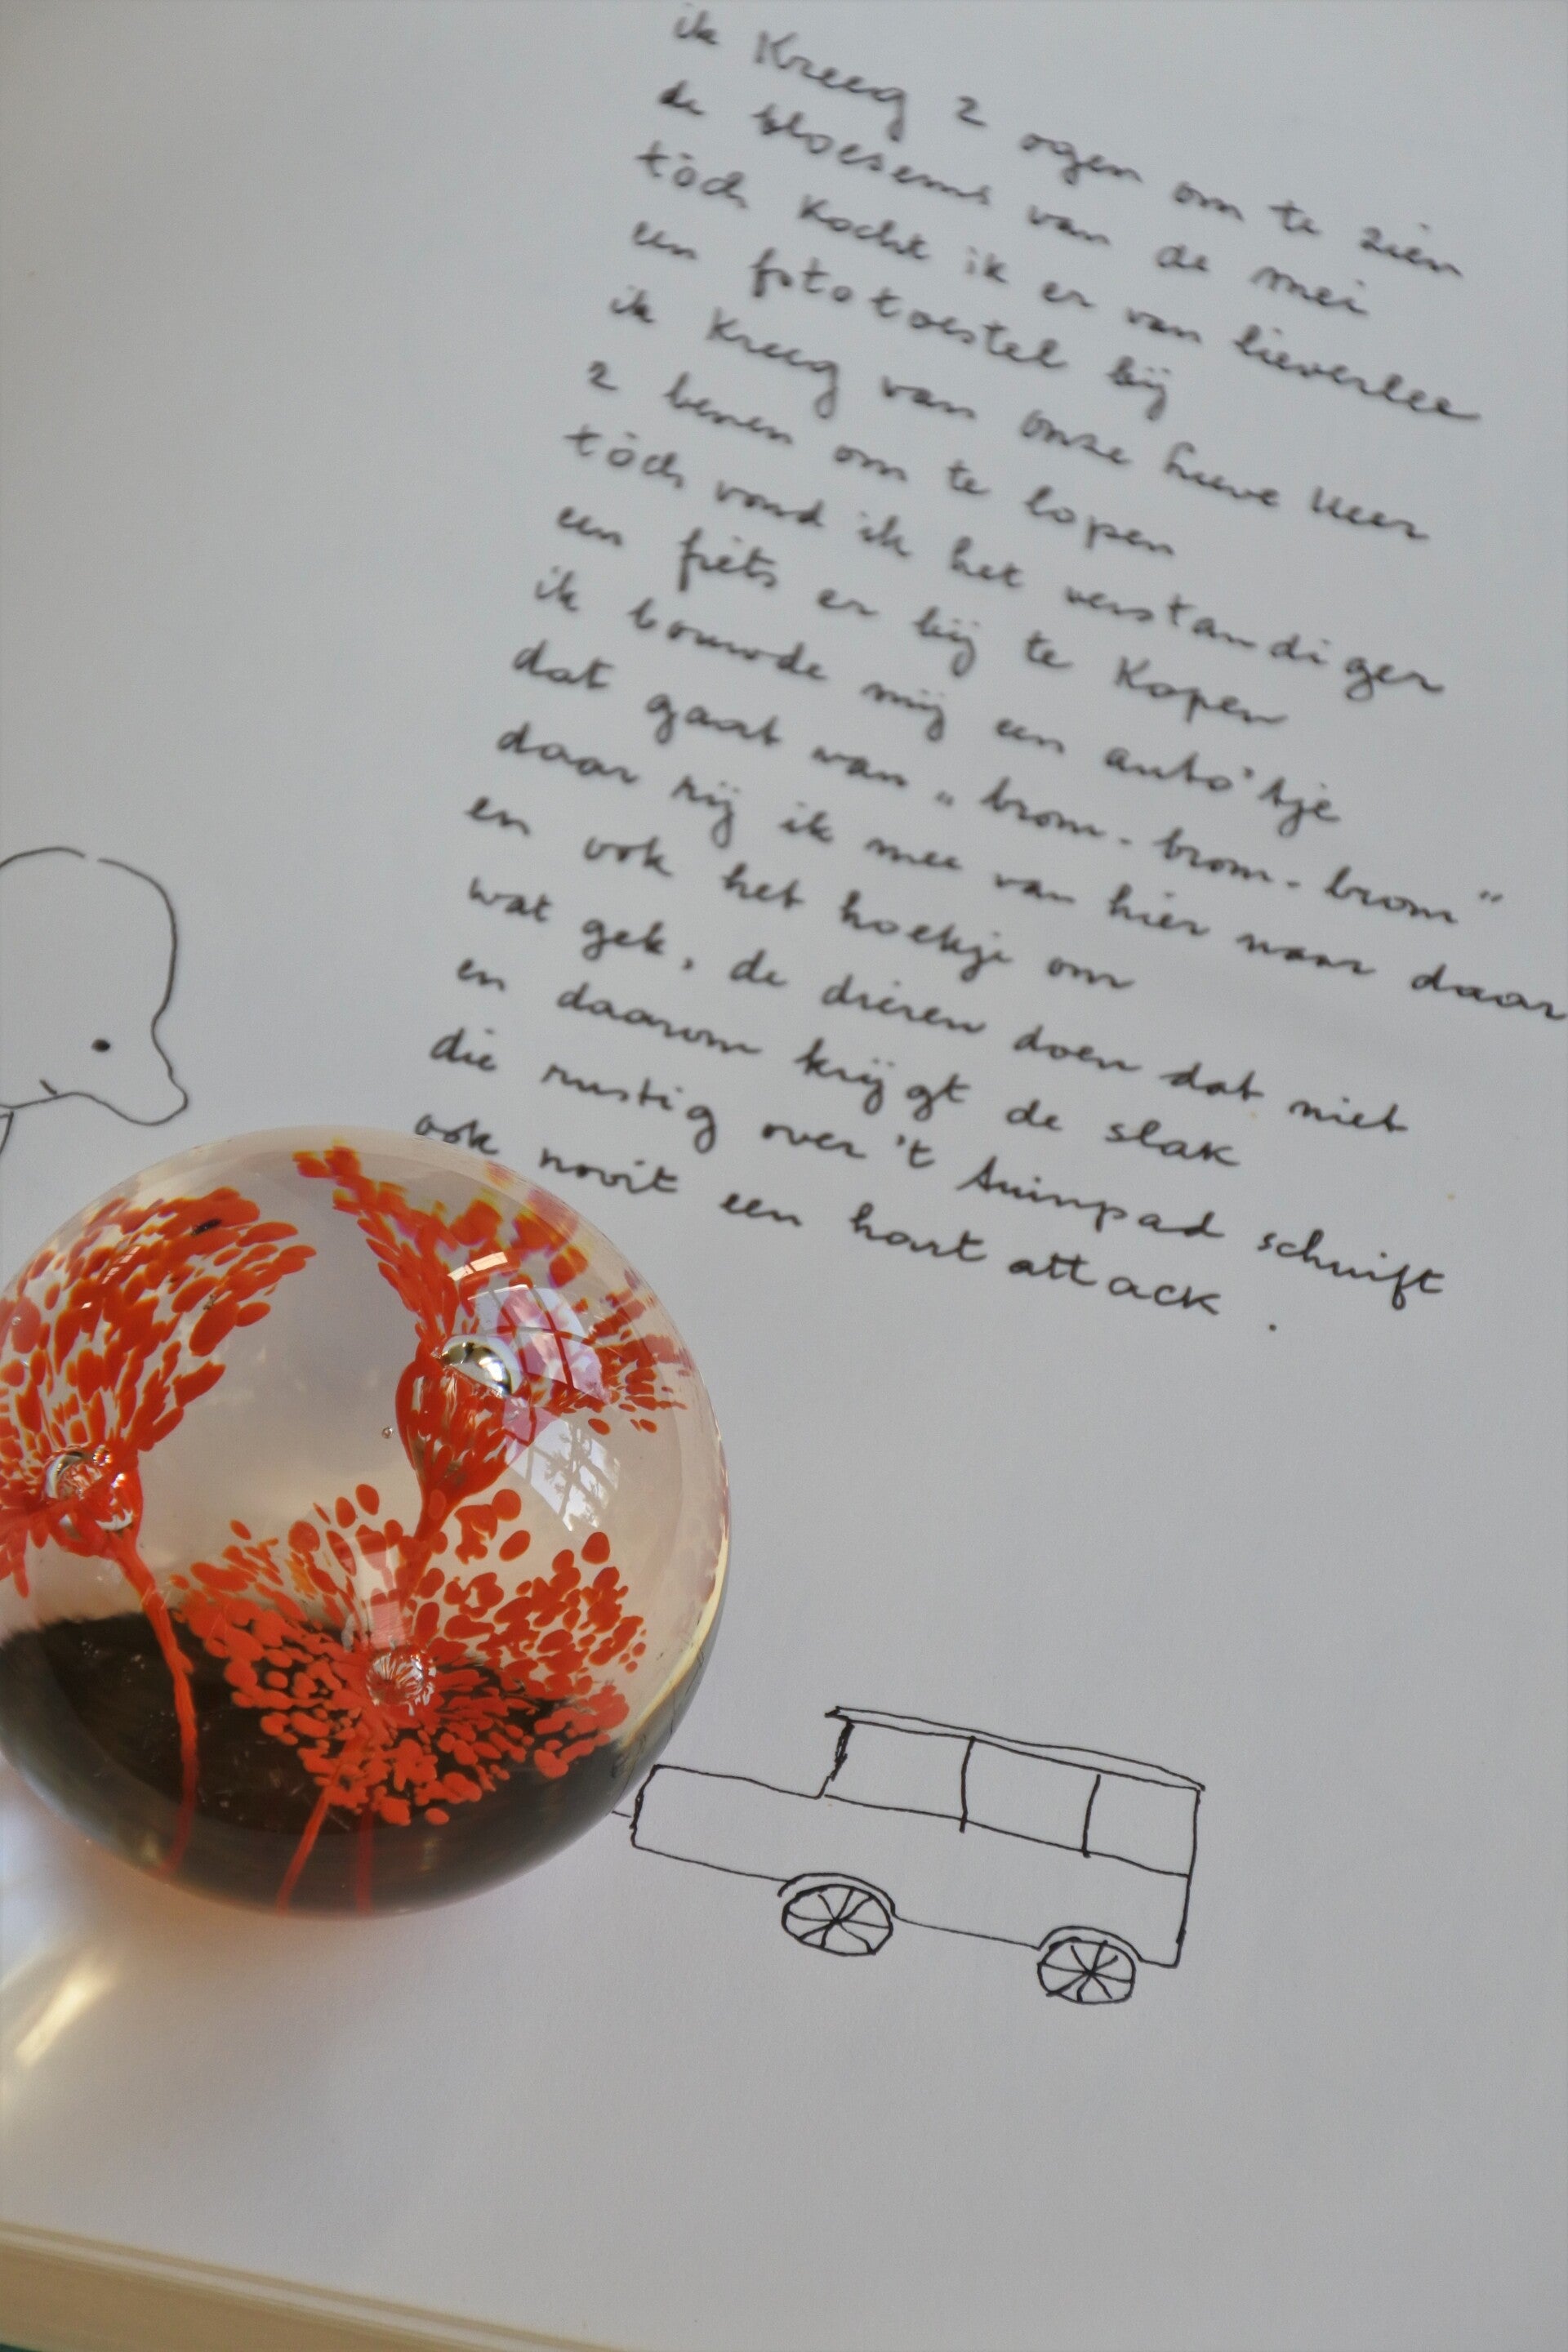 ik kreeg 2 ogen om te zien
de bloesems van de mei
tòch kocht ik er van lieverlee
een fototoestel bij
ik kreeg van onze Lieve Heer
2 benen om te lopen
tòch vond ik het verstandiger
een fiets er bij te kopen
ik bouwde mij een auto'tje
dat gaat van „brom-brom-brom"
daar rij ik mee van hier naar daar
en ook het hoekje om
wat gek, de dieren doen dat niet
en daarom krijgt de slak
die rustig over 't tuinpad schuift
ook nooit een hart attack.